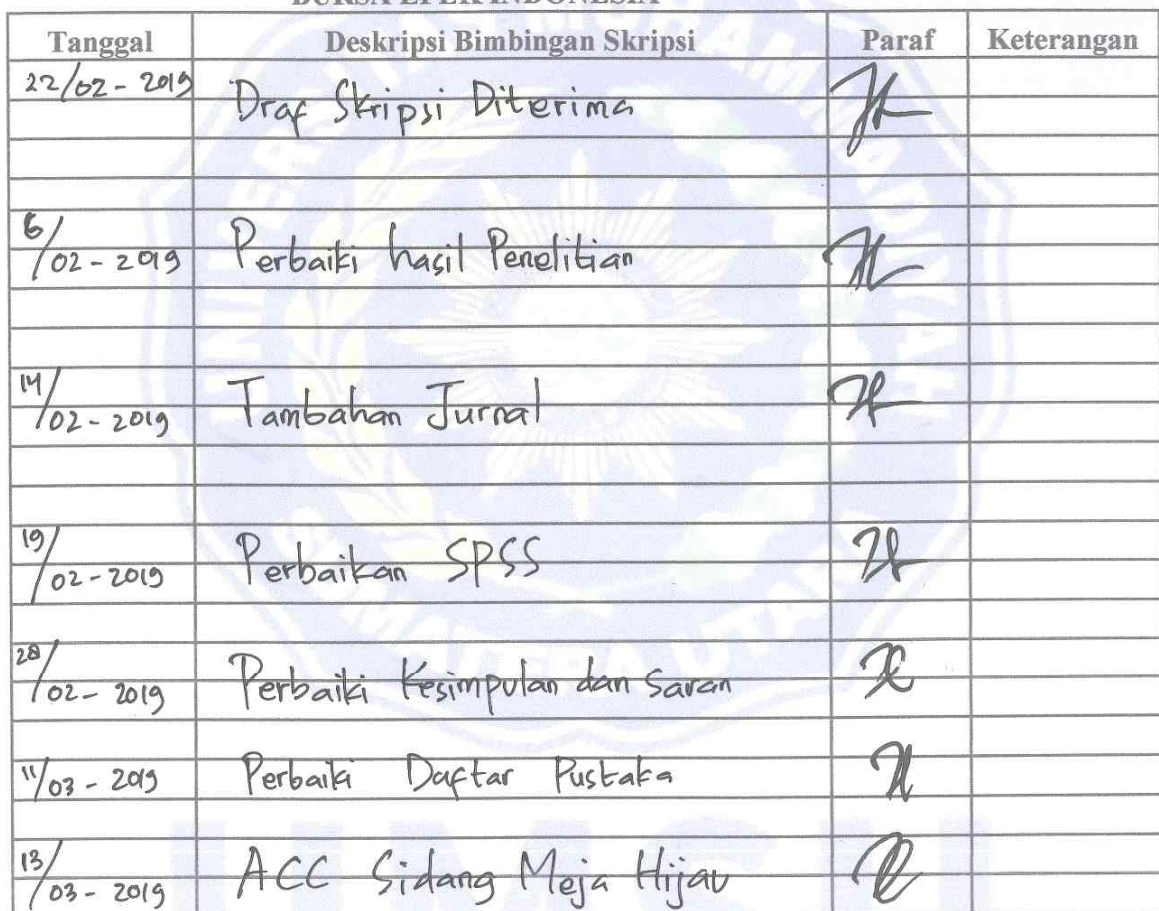 BURSA EFEK INDONESIA
Tanggal Deskripsi Bimbingan Skripsi Paraf Keterangan
22/02 - 2019 Draf Skripsi Diterima
6/02 - 2019 Perbaiki hasil Penelitian
14/02 - 2019 Tambahan Jurnal
19/02 - 2019 Perbaikan SPSS
28/02 - 2019 Perbaiki Kesimpulan dan Saran
11/03 - 2019 Perbaiki Daftar Pustaka
13/03 - 2019 ACC Sidang Meja Hijau
UNIVERSITAS MUHAMMADIYAH
SUMATERA UTARA
UMSU